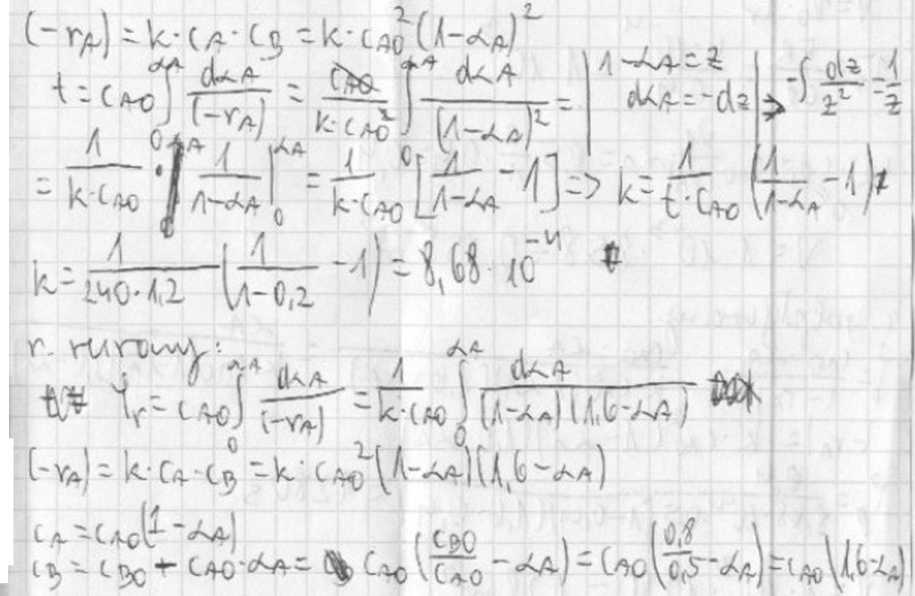 (-rA) = k·cA·cB = k·cA0²(1-αA)²
t = cA0 ∫₀^αA dαA/(-rA) = cA0/(k·cA0²) ∫₀^αA dαA/(1-αA)² = | 1-αA = z dαA = -dz | ⇒ -∫ dz/z² = 1/z
= 1/(k·cA0) · | 1/(1-αA) |₀^αA = 1/(k·cA0) [1/(1-αA) - 1] => k = 1/(t·cA0) (1/(1-αA) - 1)
k = 1/(240·1,2) (1/(1-0,2) - 1) = 8,68·10⁻⁴
r. rurowy:
τr = cA0 ∫₀^αA dαA/(-rA) = 1/(k·cA0) ∫₀^αA dαA/((1-αA)(1,6-αA))
(-rA) = k·cA·cB = k·cA0²(1-αA)(1,6-αA)
cA = cA0(1-αA)
cB = cB0 + cA0·αA = cA0(cB0/cA0 - αA) = cA0(0,8/0,5 - αA) = cA0(1,6-αA)